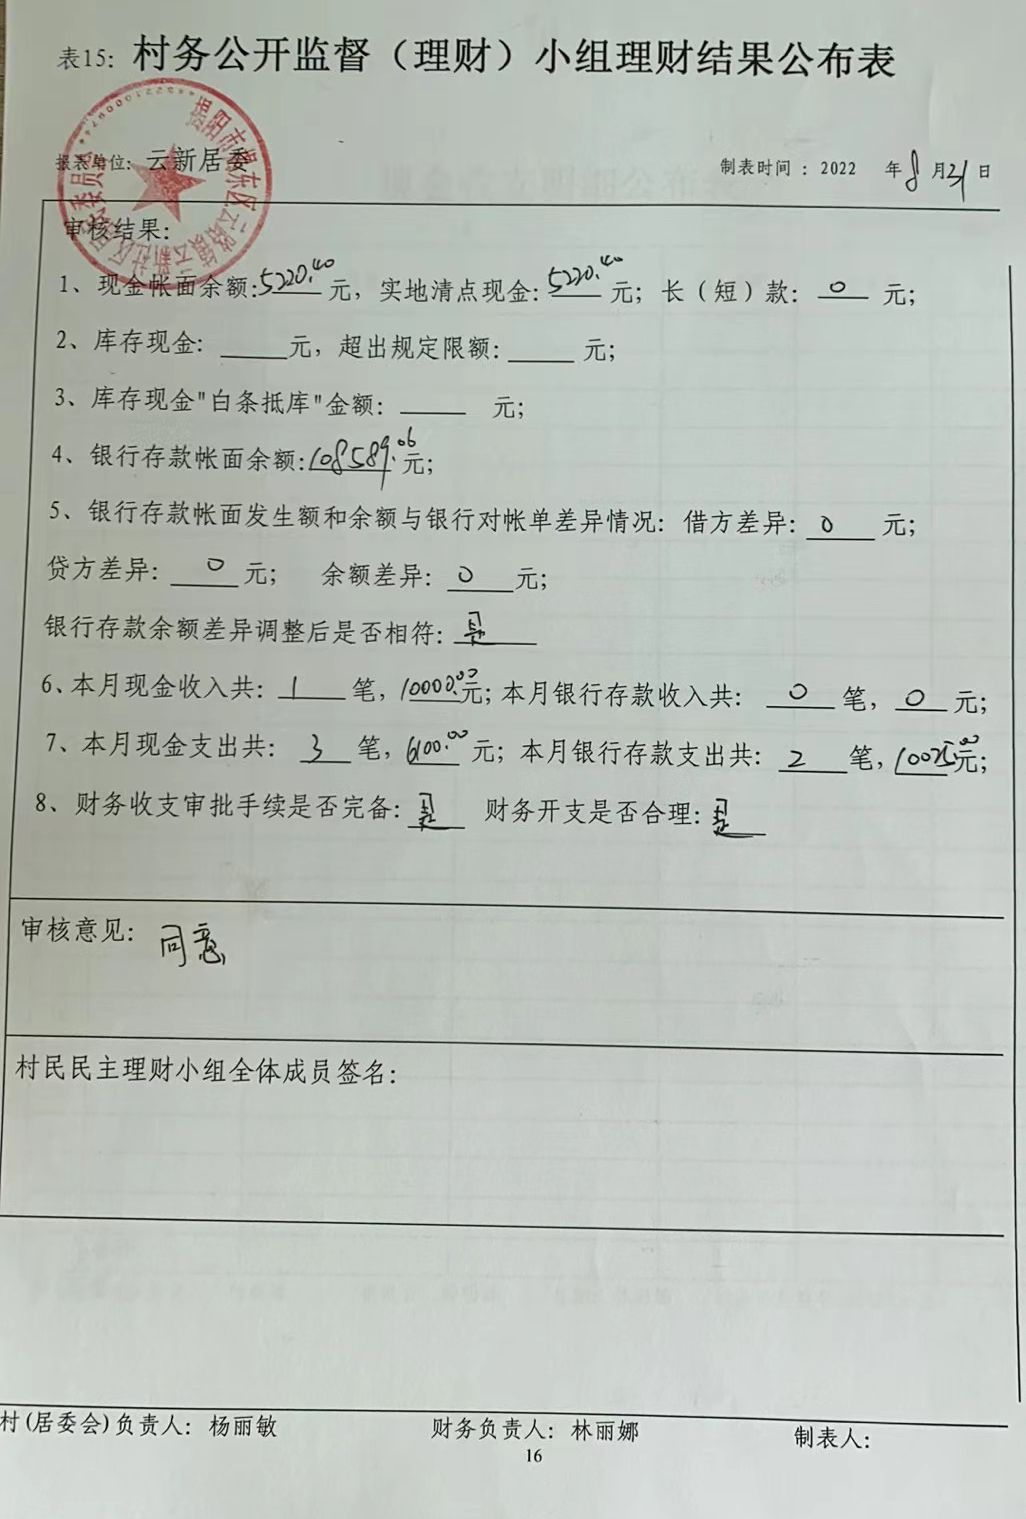 表15：村务公开监督（理财）小组理财结果公布表
报表单位：云新居委 制表时间：2022 年8月31日
审核结果：
1、现金帐面余额：5220.40元，实地清点现金：5220.40元；长（短）款：0元；
2、库存现金：____元，超出规定限额：____元；
3、库存现金"白条抵库"金额：____元；
4、银行存款帐面余额：108589.06元；
5、银行存款帐面发生额和余额与银行对帐单差异情况：借方差异：0元；
贷方差异：0元； 余额差异：0元；
银行存款余额差异调整后是否相符：是
6、本月现金收入共：1笔，10000.00元；本月银行存款收入共：0笔，0元；
7、本月现金支出共：3笔，6100.00元；本月银行存款支出共：2笔，10025.00元；
8、财务收支审批手续是否完备：是 财务开支是否合理：是
审核意见：同意
村民民主理财小组全体成员签名：
村(居委会)负责人：杨丽敏 财务负责人：林丽娜 制表人：
16